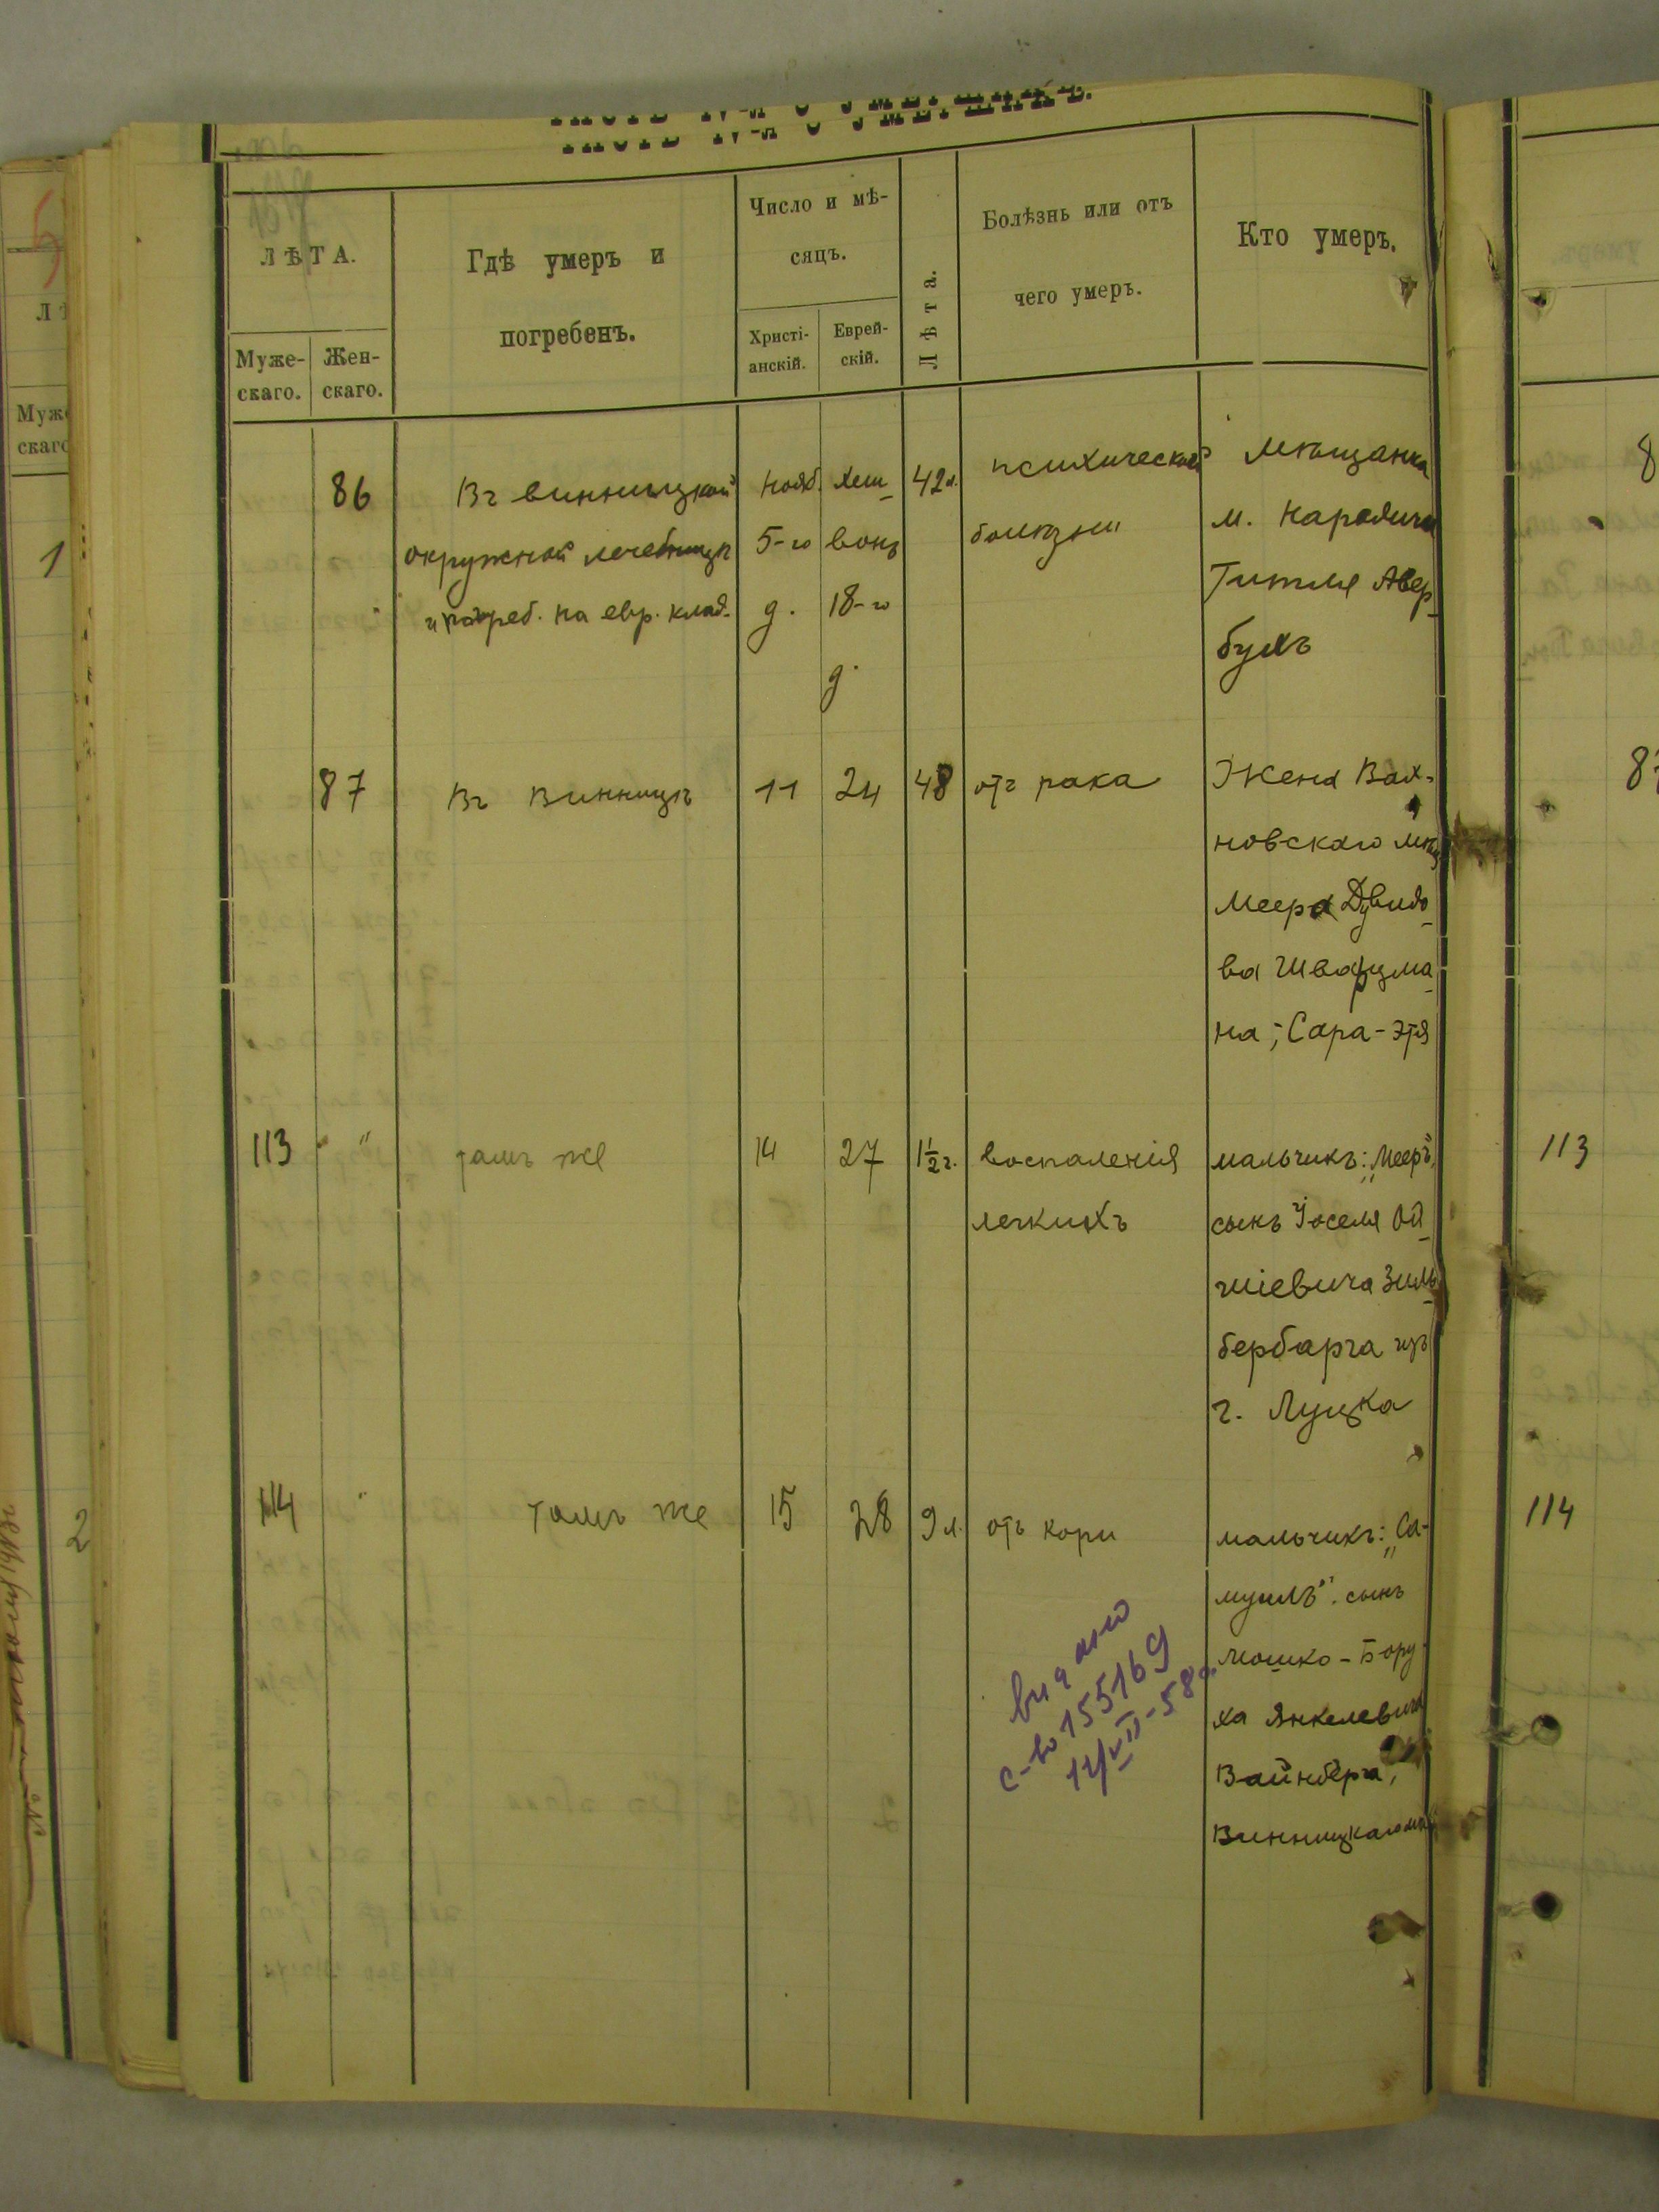 ЧАСТЬ IV-я О УМЕРШИХЪ.
ЛѢТА.
Муже-
скаго.
Жен-
скаго.
Гдѣ умеръ и
погребенъ.
Число и мѣ-
сяцъ.
Христі-
анскій.
Еврей-
скій.
Лѣта.
Болѣзнь или отъ
чего умеръ.
Кто умеръ.
86
Въ винницкой
окружной лечебницѣ
и погреб. на евр. клад.
нояб.
5-го
д.
хеш-
вонъ
18-го
д.
42 л.
психической
болѣзни
Мѣщанка
м. Народичи
Гитля Авер-
бухъ
87
Въ Винницѣ
11
24
48
отъ рака
Жена Вах-
новскаго мѣщ
Меера Дувидо-
ва Шварцма-
на, Сара-Этя
113
"
тамъ же
14
27
1½ г.
воспаленія
легкихъ
мальчикъ: „Мееръ",
сынъ Іоселя Ой-
шіевича Зиль-
бербарга изъ
г. Луцка
114
"
тамъ же
15
28
9 л.
отъ кори
мальчикъ: „Са-
муилъ". сынъ
Мошко-Бору-
ха Янкелевича
Вайнберга,
Винницкаго мѣщ
видано
с-во 155169
12/VII-58 г.
Муже
скаго
1
2
8
87
113
114